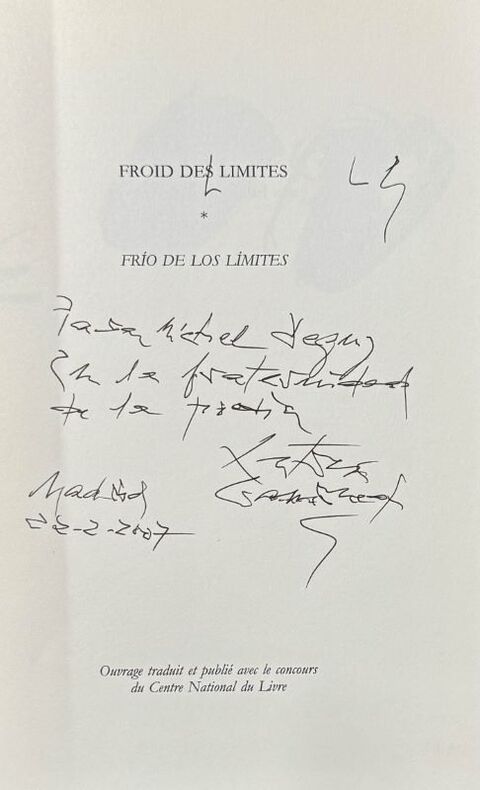 FROID DES LIMITES
*
FRÍO DE LOS LÍMITES
Para Michel Deguy
En la fraternidad
de la poesía
Antonio
Madrid Gamoneda
22-2-2007
Ouvrage traduit et publié avec le concours
du Centre National du Livre